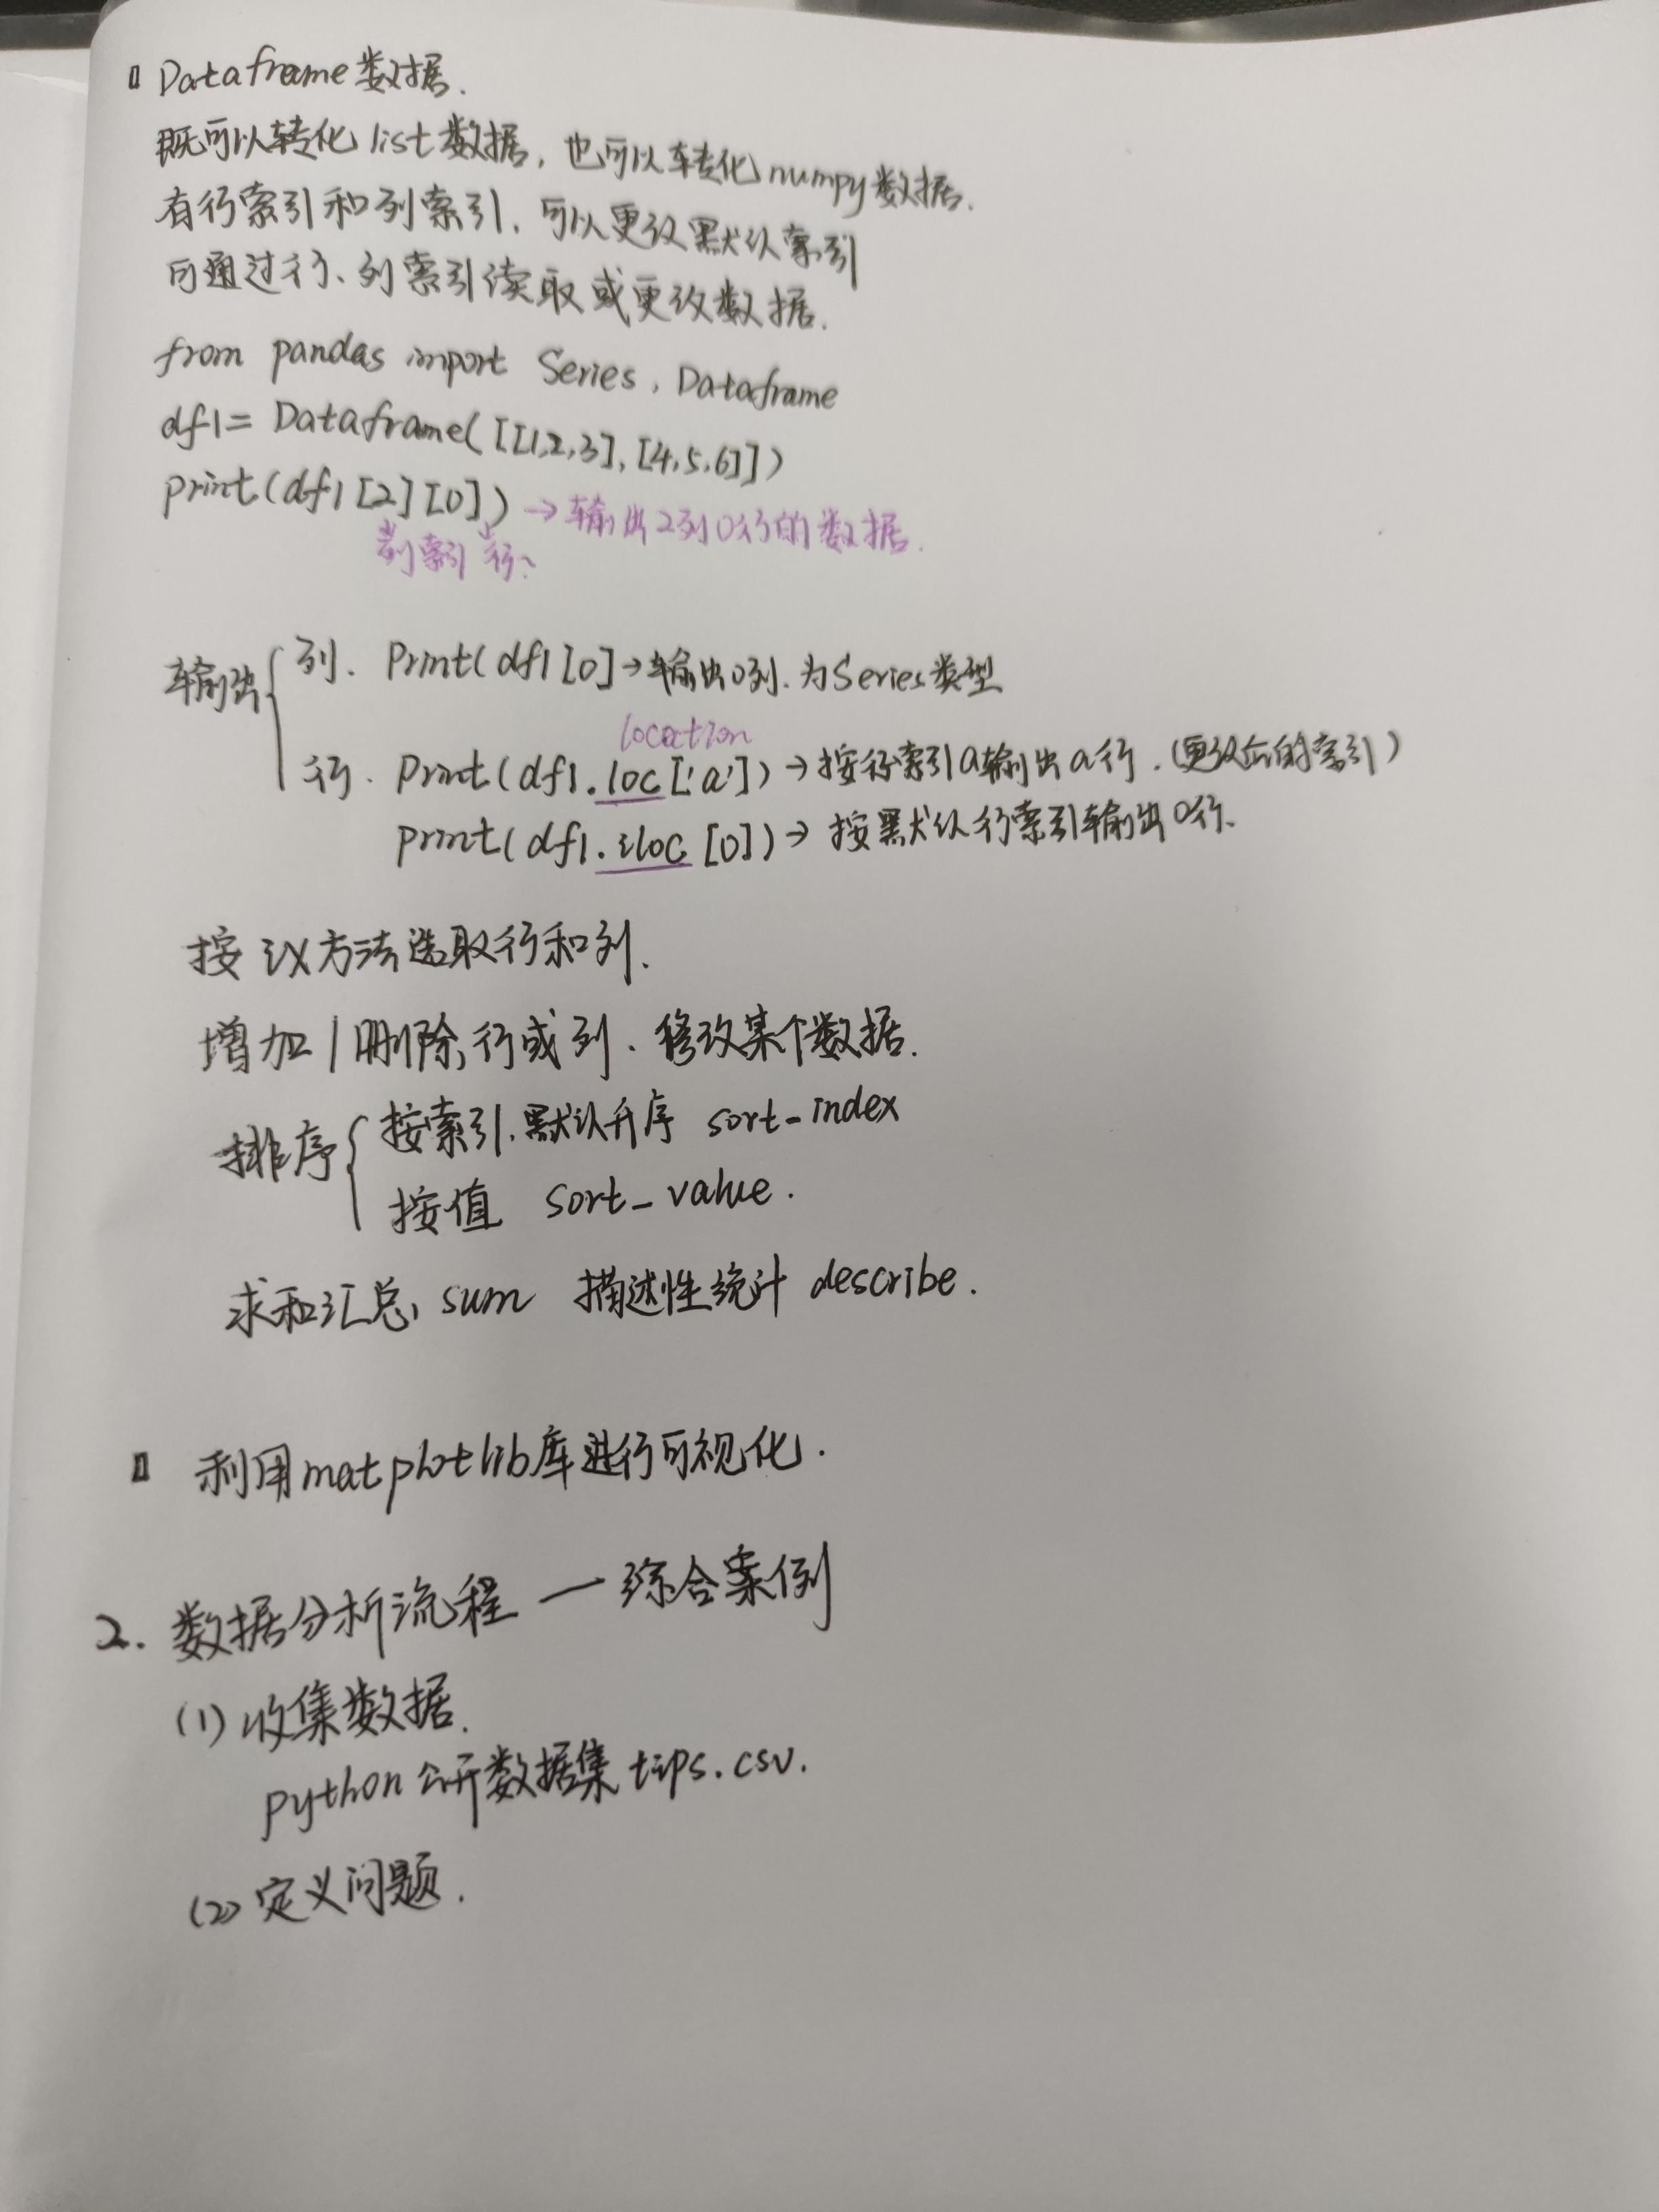 Dataframe 数据.
既可以转化 list 数据, 也可以转化 numpy 数据.
有行索引和列索引, 可以更改默认索引
可通过行、列索引读取或更改数据.
from pandas import Series, Dataframe
df1 = Dataframe([[1,2,3],[4,5,6]])
print(df1[2][0]) → 输出2列0行的数据.
列索引 行
输出 列. Print(df1[0] → 输出0列. 为Series类型
location
行. Print(df1.loc['a']) → 按行索引a输出a行. (更改后的索引)
Print(df1.iloc[0]) → 按默认行索引输出0行.
按 以方法选取行和列.
增加/删除行或列、修改某个数据.
排序 按索引, 默认升序 sort_index
按值 sort_value.
求和汇总 sum 描述性统计 describe.
利用matplotlib库进行可视化.
2. 数据分析流程 — 综合案例
(1) 收集数据.
python公开数据集 tips.csv.
(2) 定义问题.